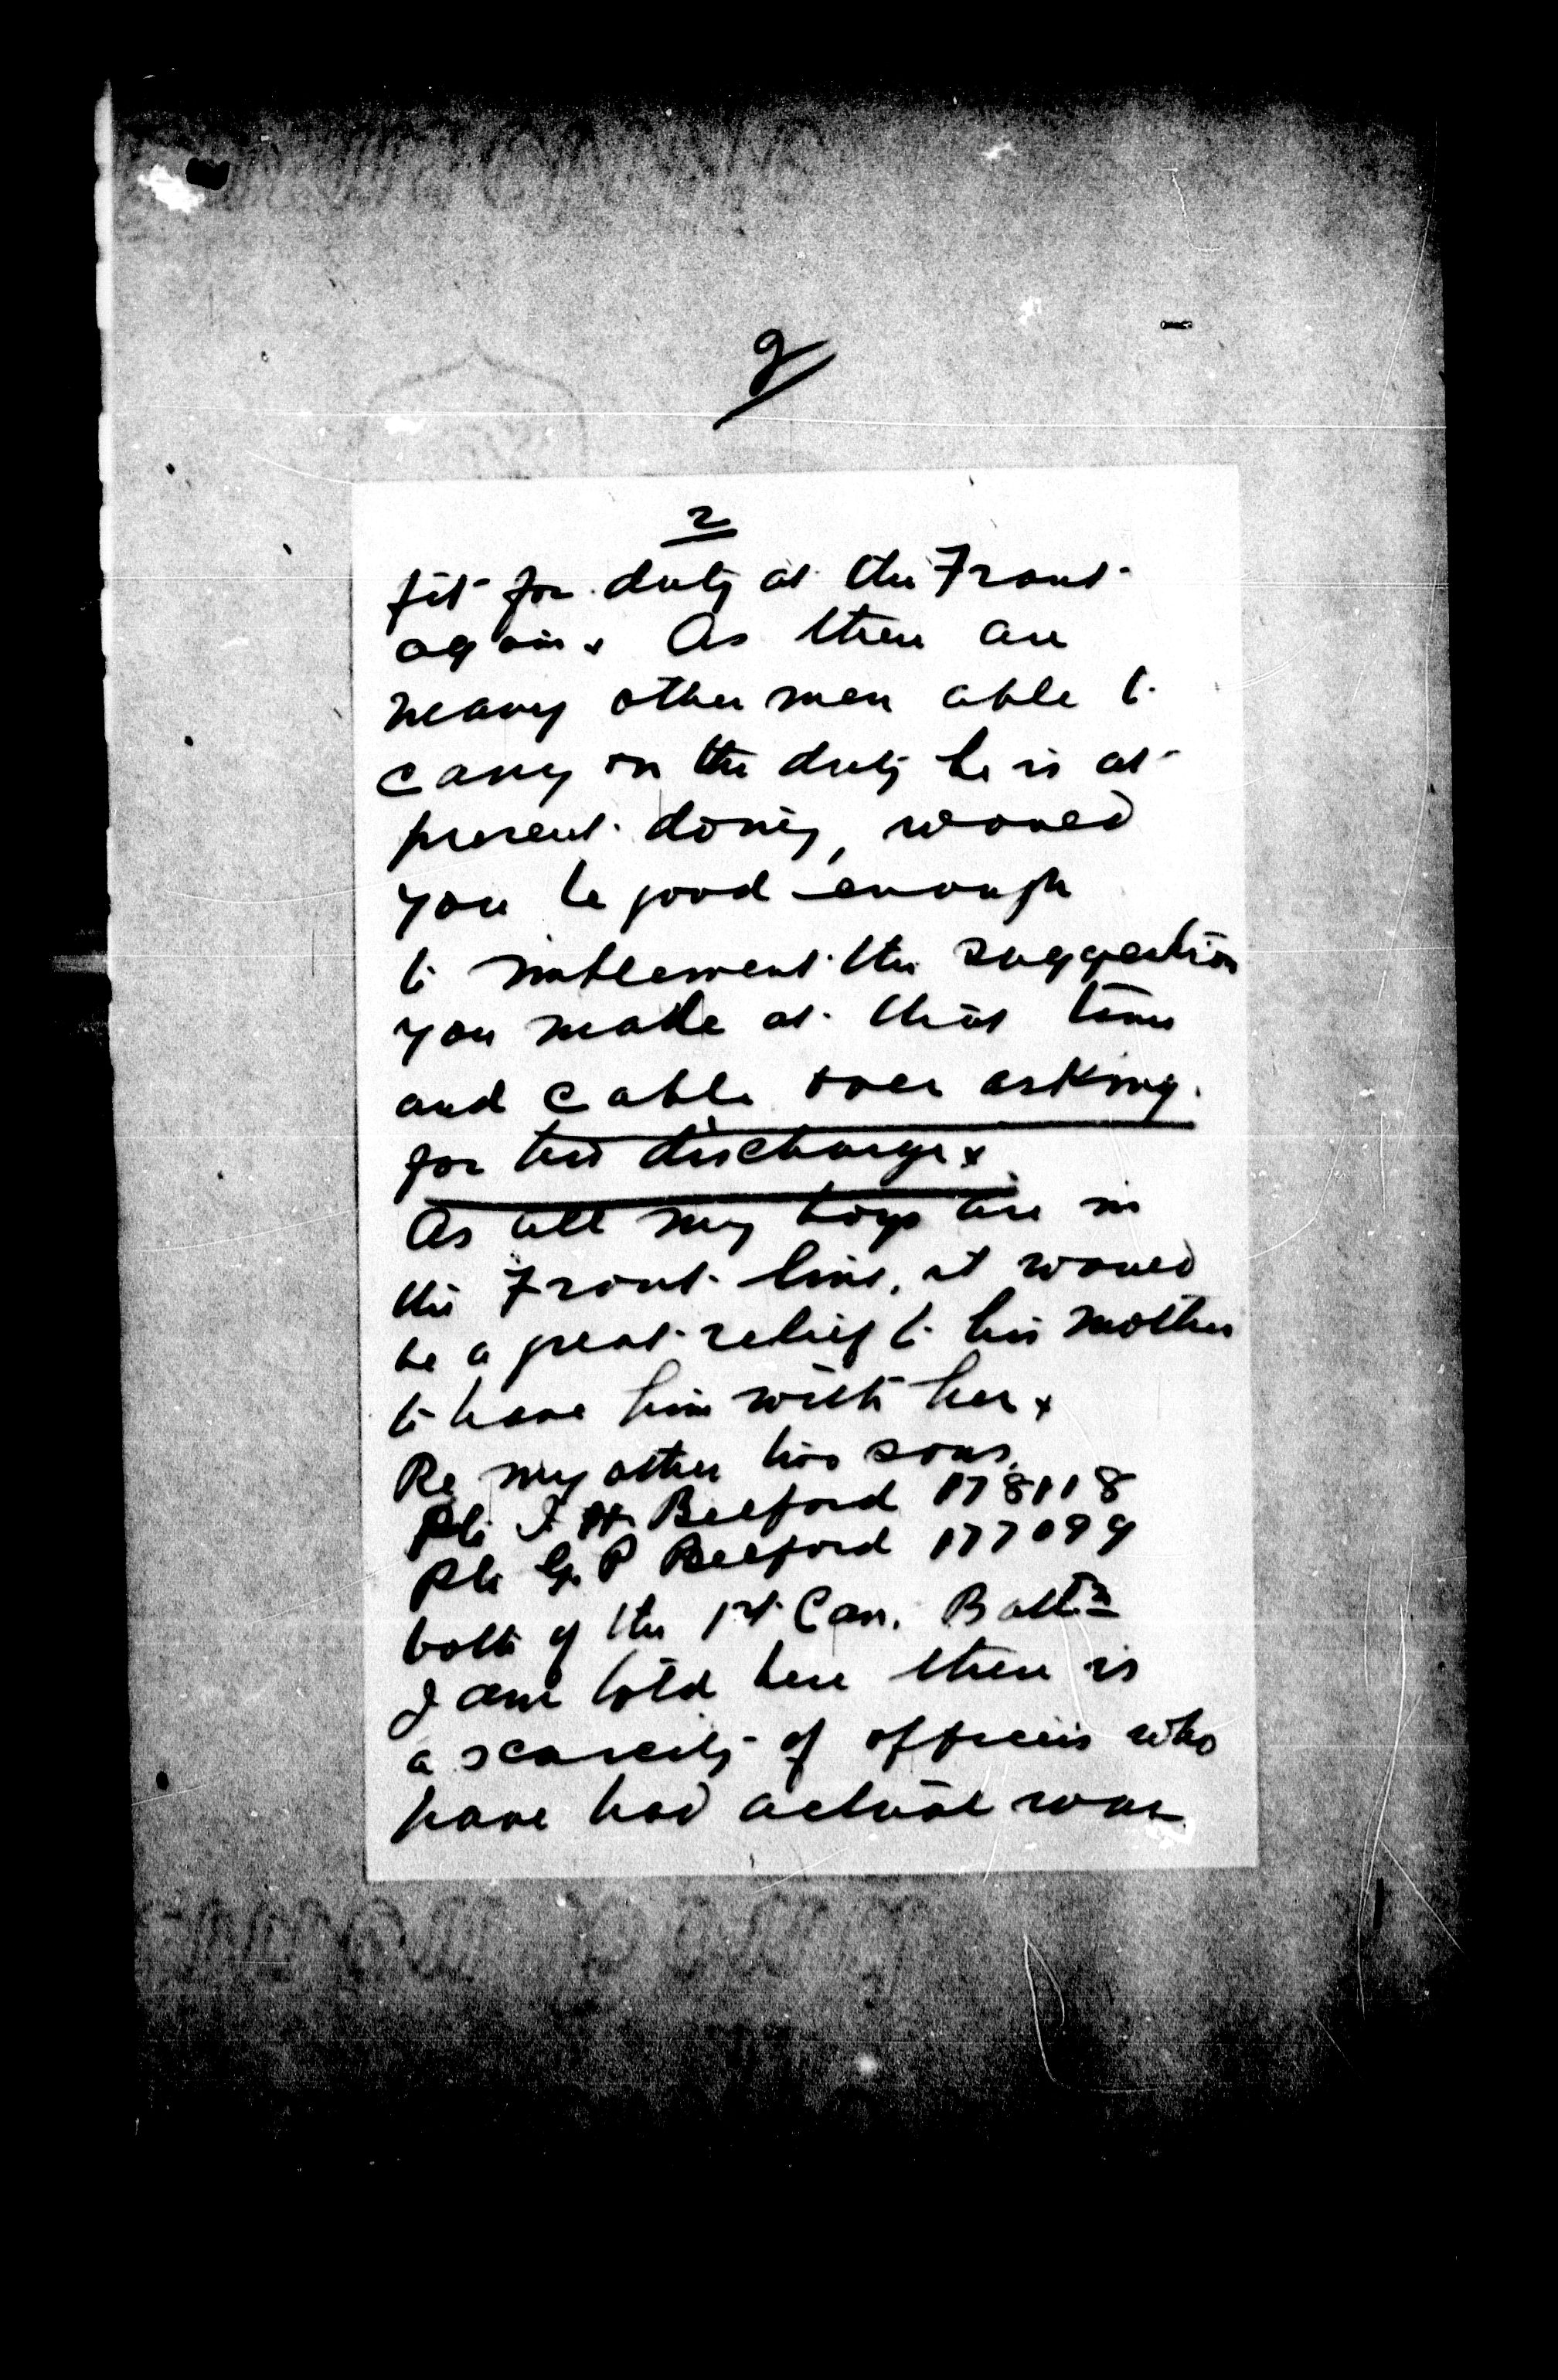 2
fit for duty at the Front
again x As there are
many other men able to
carry on the duty he is at
present doing, would
you be good enough
to implement the suggestion
you made at that time
and cable over asking
for his discharge x
As all my boys are in
the Front line, it would
be a great relief to his mother
to have him with her x
Re my other two sons.
Pte F. H. Belford 178118
Pte G. P Belford 177099
both of the 1st Can. Battn
I am told here there is
a scarcity of officers who
have had actual war